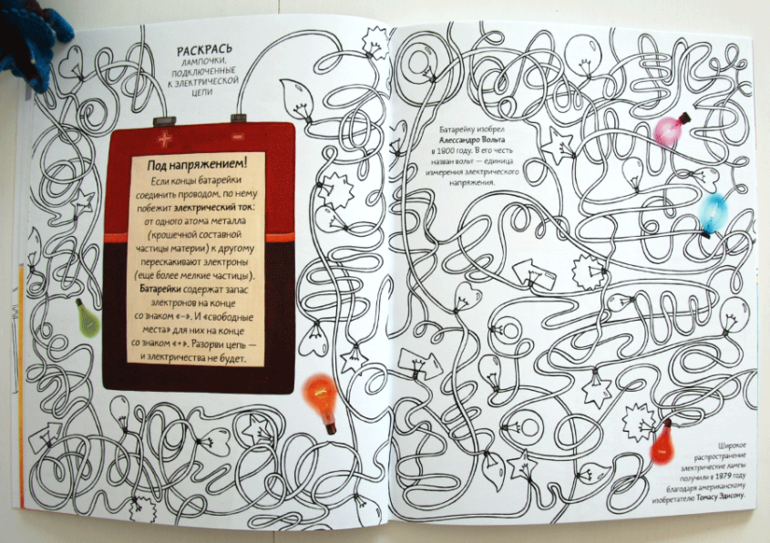 РАСКРАСЬ
ЛАМПОЧКИ,
ПОДКЛЮЧЕННЫЕ
К ЭЛЕКТРИЧЕСКОЙ
ЦЕПИ
+
−
Под напряжением!
Если концы батарейки
соединить проводом, по нему
побежит электрический ток:
от одного атома металла
(крошечной составной
частицы материи) к другому
перескакивают электроны
(еще более мелкие частицы).
Батарейки содержат запас
электронов на конце
со знаком «–». И «свободные
места» для них на конце
со знаком «+». Разорви цепь —
и электричества не будет.
Батарейку изобрел
Алессандро Вольта
в 1800 году. В его честь
назван вольт — единица
измерения электрического
напряжения.
Широкое
распространение
электрические лампы
получили в 1879 году
благодаря американскому
изобретателю Томасу Эдисону.